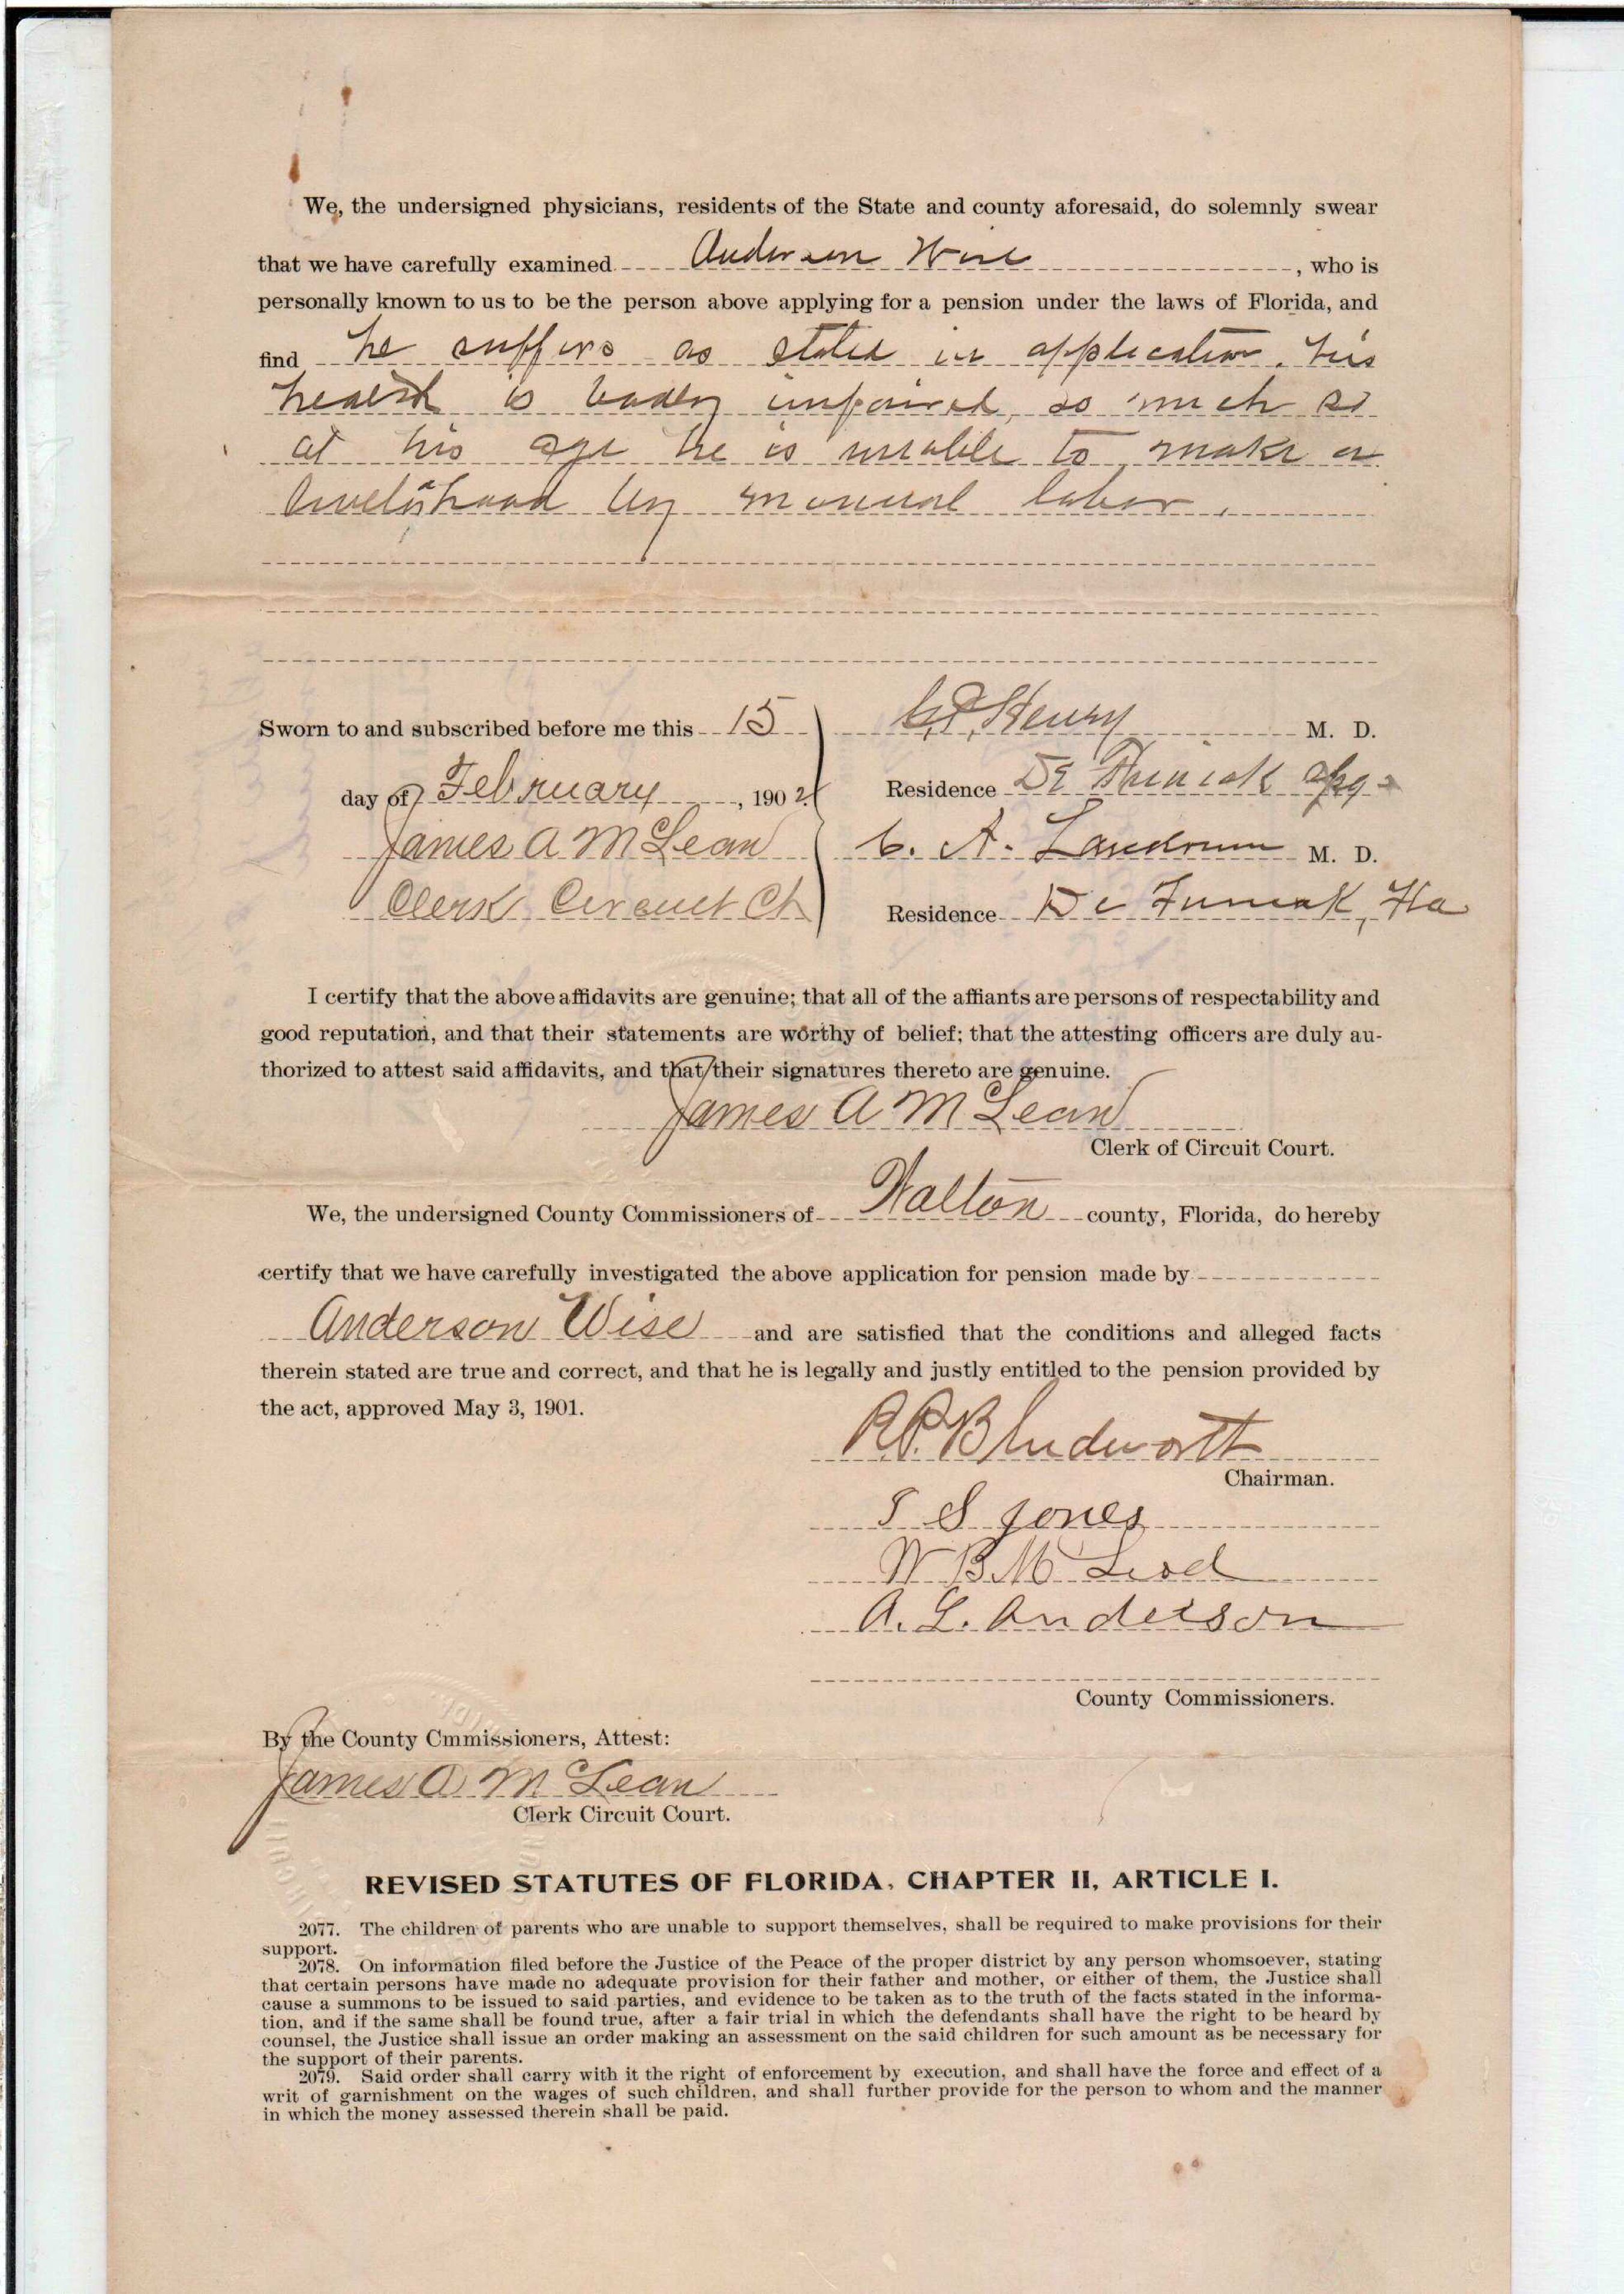 We, the undersigned physicians, residents of the State and county aforesaid, do solemnly swear
that we have carefully examined Anderson Wise, who is
personally known to us to be the person above applying for a pension under the laws of Florida, and
find he suffers as stated in application. his
health is badly impaired, so much so
at his age he is unable to make a
livelihood by manual labor.
Sworn to and subscribed before me this 15
Henry M. D.
day of February, 1902
Residence De Funiak
James A McLean
C. A. Landrum M. D.
Clerk Circuit Ct
Residence De Funiak, Fla
I certify that the above affidavits are genuine; that all of the affiants are persons of respectability and
good reputation, and that their statements are worthy of belief; that the attesting officers are duly au-
thorized to attest said affidavits, and that their signatures thereto are genuine.
James A McLean
Clerk of Circuit Court.
We, the undersigned County Commissioners of Walton county, Florida, do hereby
certify that we have carefully investigated the above application for pension made by
Anderson Wise and are satisfied that the conditions and alleged facts
therein stated are true and correct, and that he is legally and justly entitled to the pension provided by
the act, approved May 3, 1901.
R.P. Bludworth
Chairman.
S S Jones
W B McLeod
A. L. Anderson
County Commissioners.
By the County Cmmissioners, Attest:
James A McLean
Clerk Circuit Court.
REVISED STATUTES OF FLORIDA, CHAPTER II, ARTICLE I.
2077. The children of parents who are unable to support themselves, shall be required to make provisions for their
support.
2078. On information filed before the Justice of the Peace of the proper district by any person whomsoever, stating
that certain persons have made no adequate provision for their father and mother, or either of them, the Justice shall
cause a summons to be issued to said parties, and evidence to be taken as to the truth of the facts stated in the informa-
tion, and if the same shall be found true, after a fair trial in which the defendants shall have the right to be heard by
counsel, the Justice shall issue an order making an assessment on the said children for such amount as be necessary for
the support of their parents.
2079. Said order shall carry with it the right of enforcement by execution, and shall have the force and effect of a
writ of garnishment on the wages of such children, and shall further provide for the person to whom and the manner
in which the money assessed therein shall be paid.